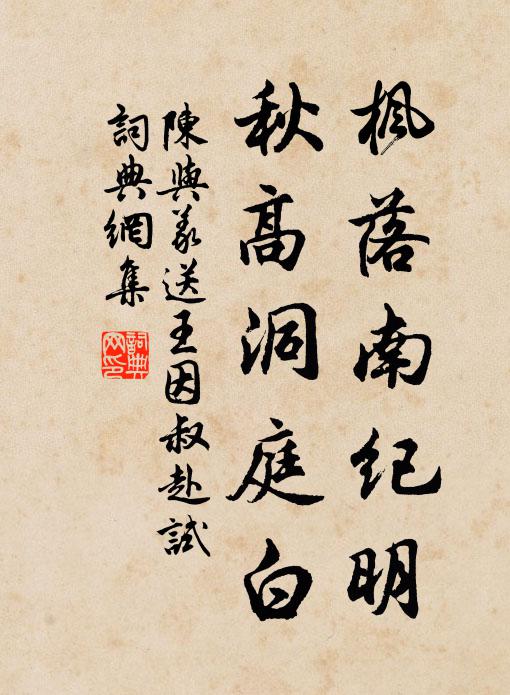 枫落南纪明
秋高洞庭白
陳與義送王因叔赴試
詞典網集
詞典網印